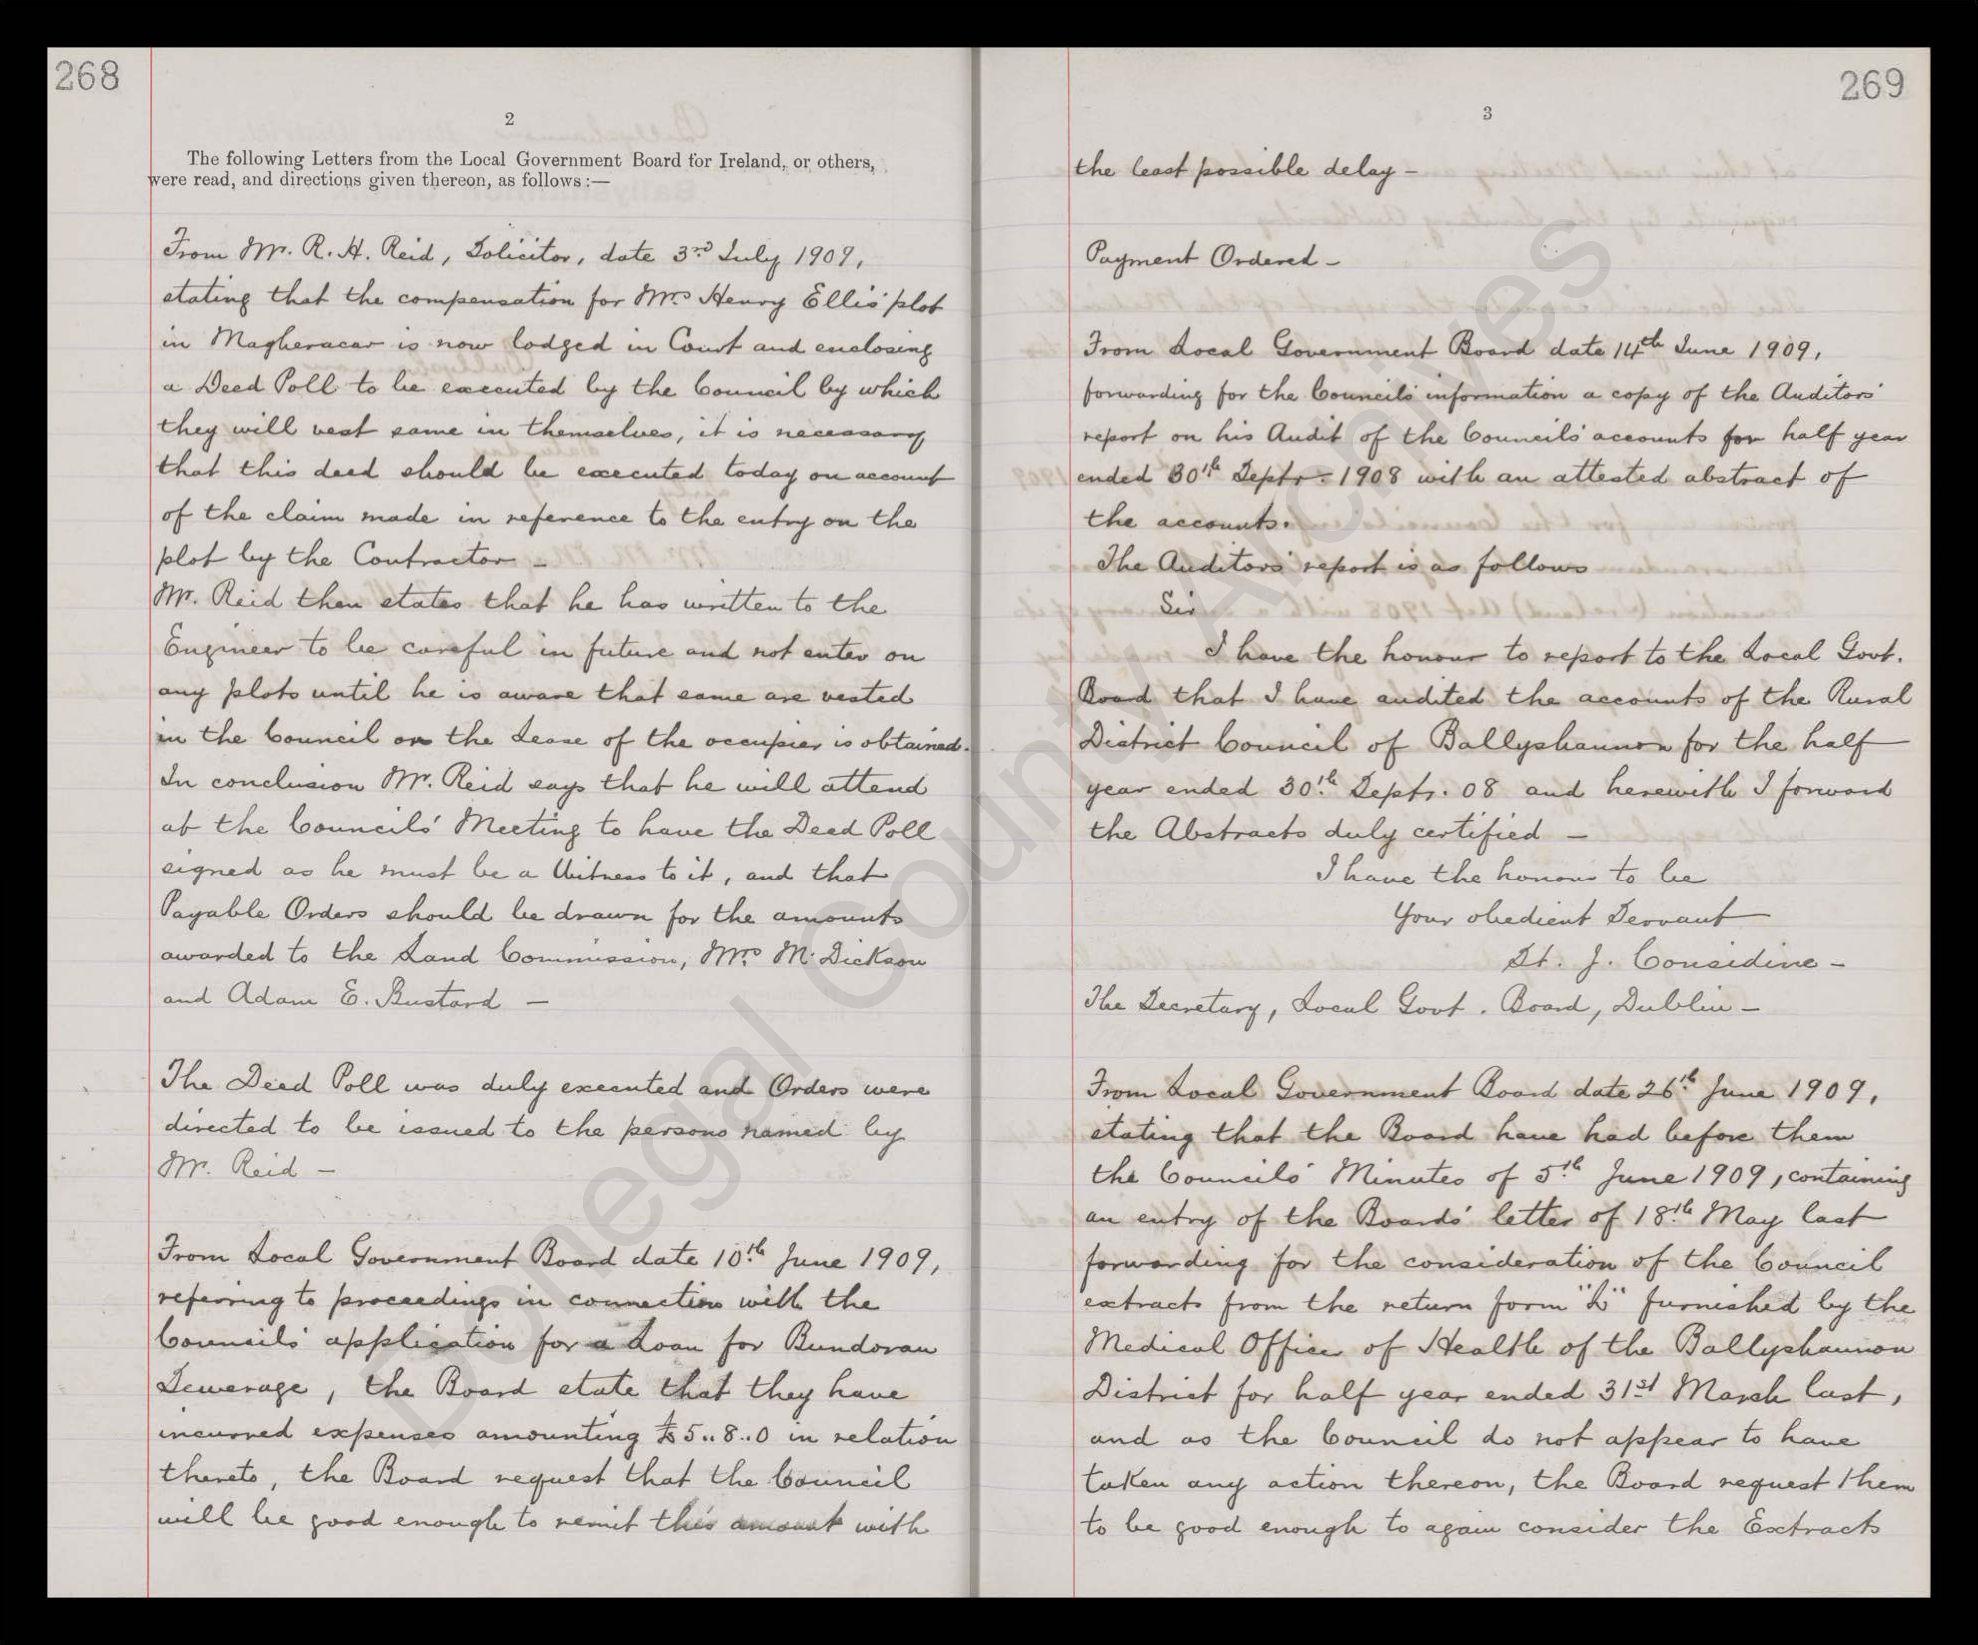 268
2
The following Letters from the Local Government Board for Ireland, or others,
were read, and directions given thereon, as follows:—
From Mr. R. H. Reid, Solicitor, date 3rd July 1909,
stating that the compensation for Mrs Henry Ellis' plot
in Magheracar is now lodged in Court and enclosing
a Deed Poll to be executed by the Council by which
they will vest same in themselves, it is necessary
that this deed should be executed today on account
of the claim made in reference to the entry on the
plot by the Contractor —
Mr. Reid then states that he has written to the
Engineer to be careful in future and not enter on
any plots until he is aware that same are vested
in the Council or the Lease of the occupier is obtained.
In conclusion Mr. Reid says that he will attend
at the Councils' Meeting to have the Deed Poll
signed as he must be a Witness to it, and that
Payable Orders should be drawn for the amounts
awarded to the Land Commission, Mrs M. Dickson
and Adam E. Bustard —
The Deed Poll was duly executed and Orders were
directed to be issued to the persons named by
Mr. Reid —
From Local Government Board date 10th June 1909,
referring to proceedings in connection with the
Councils' application for a Loan for Bundoran
Sewerage, the Board state that they have
incurred expenses amounting to 5..8..0 in relation
thereto, the Board request that the Council
will be good enough to remit this amount with
269
3
the least possible delay —
Payment Ordered —
From Local Government Board date 14th June 1909,
forwarding for the Councils' information a copy of the Auditors'
report on his Audit of the Councils' accounts for half year
ended 30th Septr. 1908 with an attested abstract of
the accounts.
The Auditors' report is as follows
Sir
I have the honour to report to the Local Govt.
Board that I have audited the accounts of the Rural
District Council of Ballyshannon for the half
year ended 30th Septr. 08 and herewith I forward
the Abstracts duly certified —
I have the honour to be
Your obedient Servant
St. J. Considine —
The Secretary, Local Govt. Board, Dublin —
From Local Government Board date 26th June 1909,
stating that the Board have had before them
the Councils' Minutes of 5th June 1909, containing
an entry of the Boards' letter of 18th May last
forwarding for the consideration of the Council
extracts from the return form "L" furnished by the
Medical Officer of Health of the Ballyshannon
District for half year ended 31st March last,
and as the Council do not appear to have
taken any action thereon, the Board request them
to be good enough to again consider the Extracts
Donegal County Archives